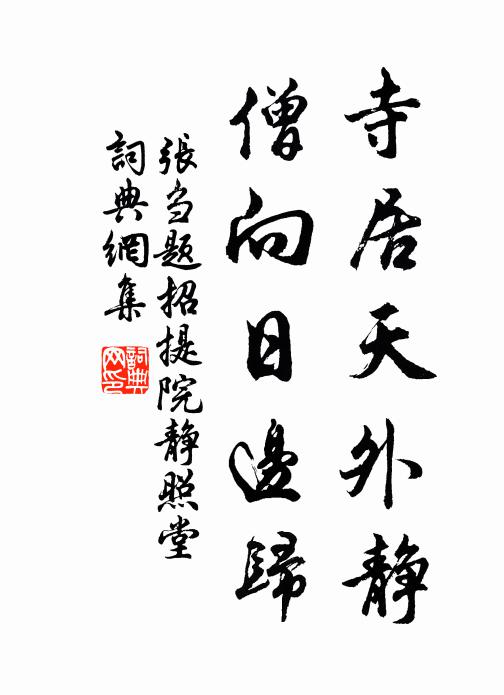 寺居天外静
僧向日邊歸
張当題招提院静照堂
詞典網集
詞典網印